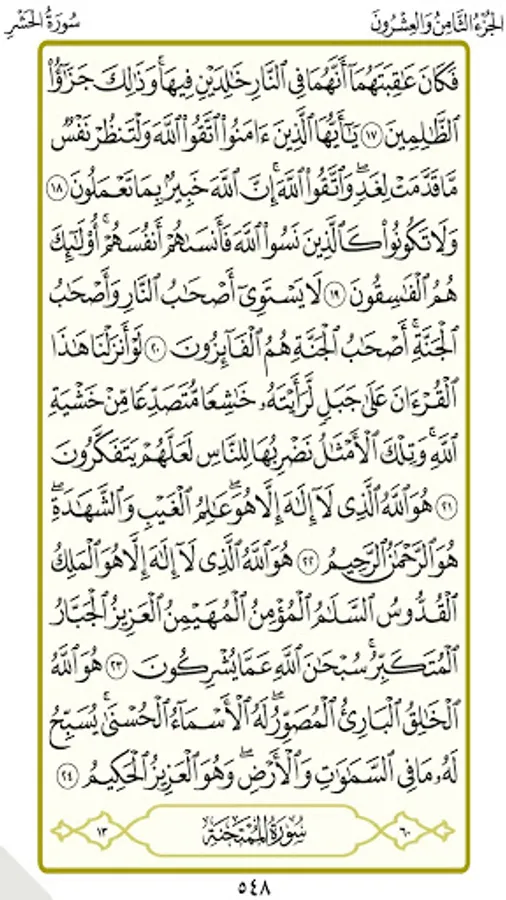 الجزء الثامن والعشرون
سورة الحشر
فَكَانَ عَٰقِبَتَهُمَآ أَنَّهُمَا فِى ٱلنَّارِ خَٰلِدَيْنِ فِيهَا ۚ وَذَٰلِكَ جَزَٰٓؤُا۟
ٱلظَّٰلِمِينَ ١٧ يَٰٓأَيُّهَا ٱلَّذِينَ ءَامَنُوا۟ ٱتَّقُوا۟ ٱللَّهَ وَلْتَنظُرْ نَفْسٌ
مَّا قَدَّمَتْ لِغَدٍ ۖ وَٱتَّقُوا۟ ٱللَّهَ ۚ إِنَّ ٱللَّهَ خَبِيرٌۢ بِمَا تَعْمَلُونَ ١٨
وَلَا تَكُونُوا۟ كَٱلَّذِينَ نَسُوا۟ ٱللَّهَ فَأَنسَىٰهُمْ أَنفُسَهُمْ ۚ أُو۟لَٰٓئِكَ
هُمُ ٱلْفَٰسِقُونَ ١٩ لَا يَسْتَوِىٓ أَصْحَٰبُ ٱلنَّارِ وَأَصْحَٰبُ
ٱلْجَنَّةِ ۚ أَصْحَٰبُ ٱلْجَنَّةِ هُمُ ٱلْفَآئِزُونَ ٢٠ لَوْ أَنزَلْنَا هَٰذَا
ٱلْقُرْءَانَ عَلَىٰ جَبَلٍ لَّرَأَيْتَهُۥ خَٰشِعًا مُّتَصَدِّعًا مِّنْ خَشْيَةِ
ٱللَّهِ ۚ وَتِلْكَ ٱلْأَمْثَٰلُ نَضْرِبُهَا لِلنَّاسِ لَعَلَّهُمْ يَتَفَكَّرُونَ
٢١ هُوَ ٱللَّهُ ٱلَّذِى لَآ إِلَٰهَ إِلَّا هُوَ ۖ عَٰلِمُ ٱلْغَيْبِ وَٱلشَّهَٰدَةِ ۖ
هُوَ ٱلرَّحْمَٰنُ ٱلرَّحِيمُ ٢٢ هُوَ ٱللَّهُ ٱلَّذِى لَآ إِلَٰهَ إِلَّا هُوَ ٱلْمَلِكُ
ٱلْقُدُّوسُ ٱلسَّلَٰمُ ٱلْمُؤْمِنُ ٱلْمُهَيْمِنُ ٱلْعَزِيزُ ٱلْجَبَّارُ
ٱلْمُتَكَبِّرُ ۚ سُبْحَٰنَ ٱللَّهِ عَمَّا يُشْرِكُونَ ٢٣ هُوَ ٱللَّهُ
ٱلْخَٰلِقُ ٱلْبَارِئُ ٱلْمُصَوِّرُ ۖ لَهُ ٱلْأَسْمَآءُ ٱلْحُسْنَىٰ ۚ يُسَبِّحُ
لَهُۥ مَا فِى ٱلسَّمَٰوَٰتِ وَٱلْأَرْضِ ۖ وَهُوَ ٱلْعَزِيزُ ٱلْحَكِيمُ ٢٤
٦٠ سورة الممتحنة ١٣
٥٤٨